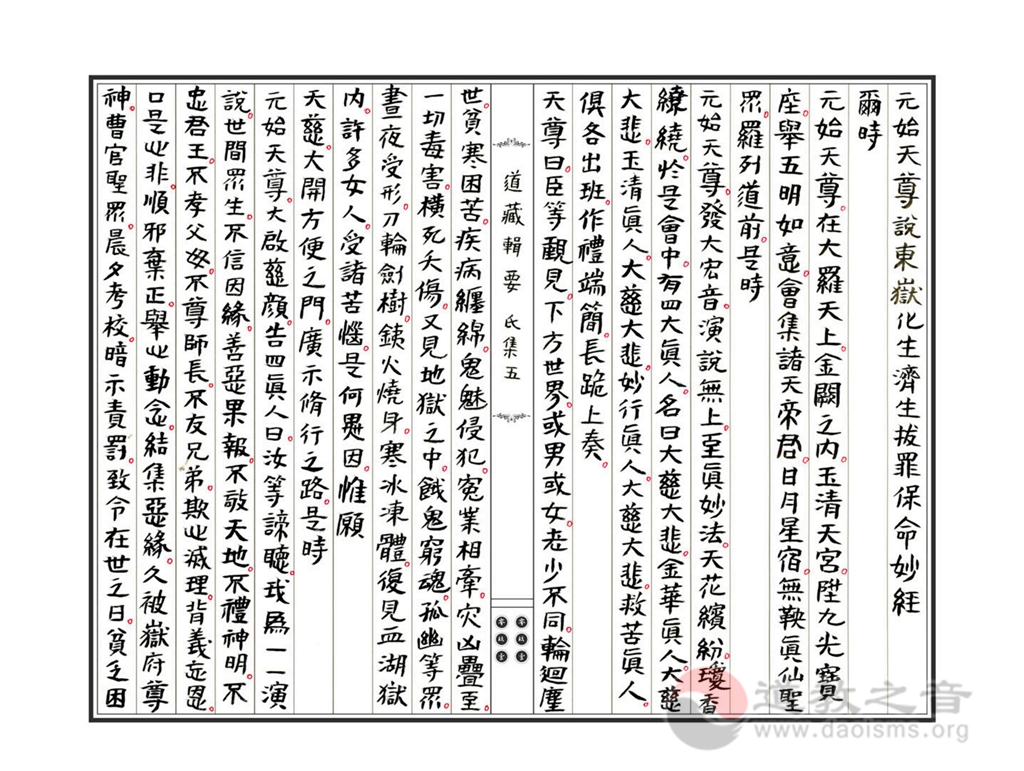 元始天尊說東嶽化生濟生拔罪保命妙經
爾時
元始天尊。在大羅天上。金闕之內。玉清天宮。陞九光寶
座。舉五明如意。會集諸天帝君。日月星宿。無鞅眞仙聖
眾。羅列道前。是時
元始天尊。發大宏音。演說無上。至眞妙法。天花繽紛。瓊香
繚繞。於是會中。有四大眞人。名曰大慈大悲。金華眞人。大慈
大悲。玉清眞人。大慈大悲。妙行眞人。大慈大悲。救苦眞人。
俱各出班。作禮端簡。長跪上奏。
天尊曰。臣等觀見。下方世界。或男或女。老少不同。輪迴塵
道藏輯要 氐集五
世。貧寒困苦。疾病纏綿。鬼魅侵犯。冤業相牽。灾凶疊至。
一切毒害。橫死夭傷。又見地獄之中。餓鬼窮魂。孤幽等眾。
晝夜受形。刀輪劍樹。銕火燒身。寒冰凍體。復見血湖獄
內。許多女人。受諸苦惱。是何愚因。惟願
天慈。大開方便之門。廣示脩行之路。是時
元始天尊。大啟慈顔。告四眞人曰。汝等諦聽。我爲一一演
說。世間眾生。不信因緣。善惡果報。不敬天地。不禮神明。不
忠君王。不孝父母。不尊師長。不友兄弟。欺心滅理。背義忘恩。
口是心非。順邪棄正。舉心動念。結集惡緣。久被嶽府尊
神。曹官聖眾。晨夕考校。暗示責罰。致令在世之日。貧乏困
道教之音
www.daoisms.org